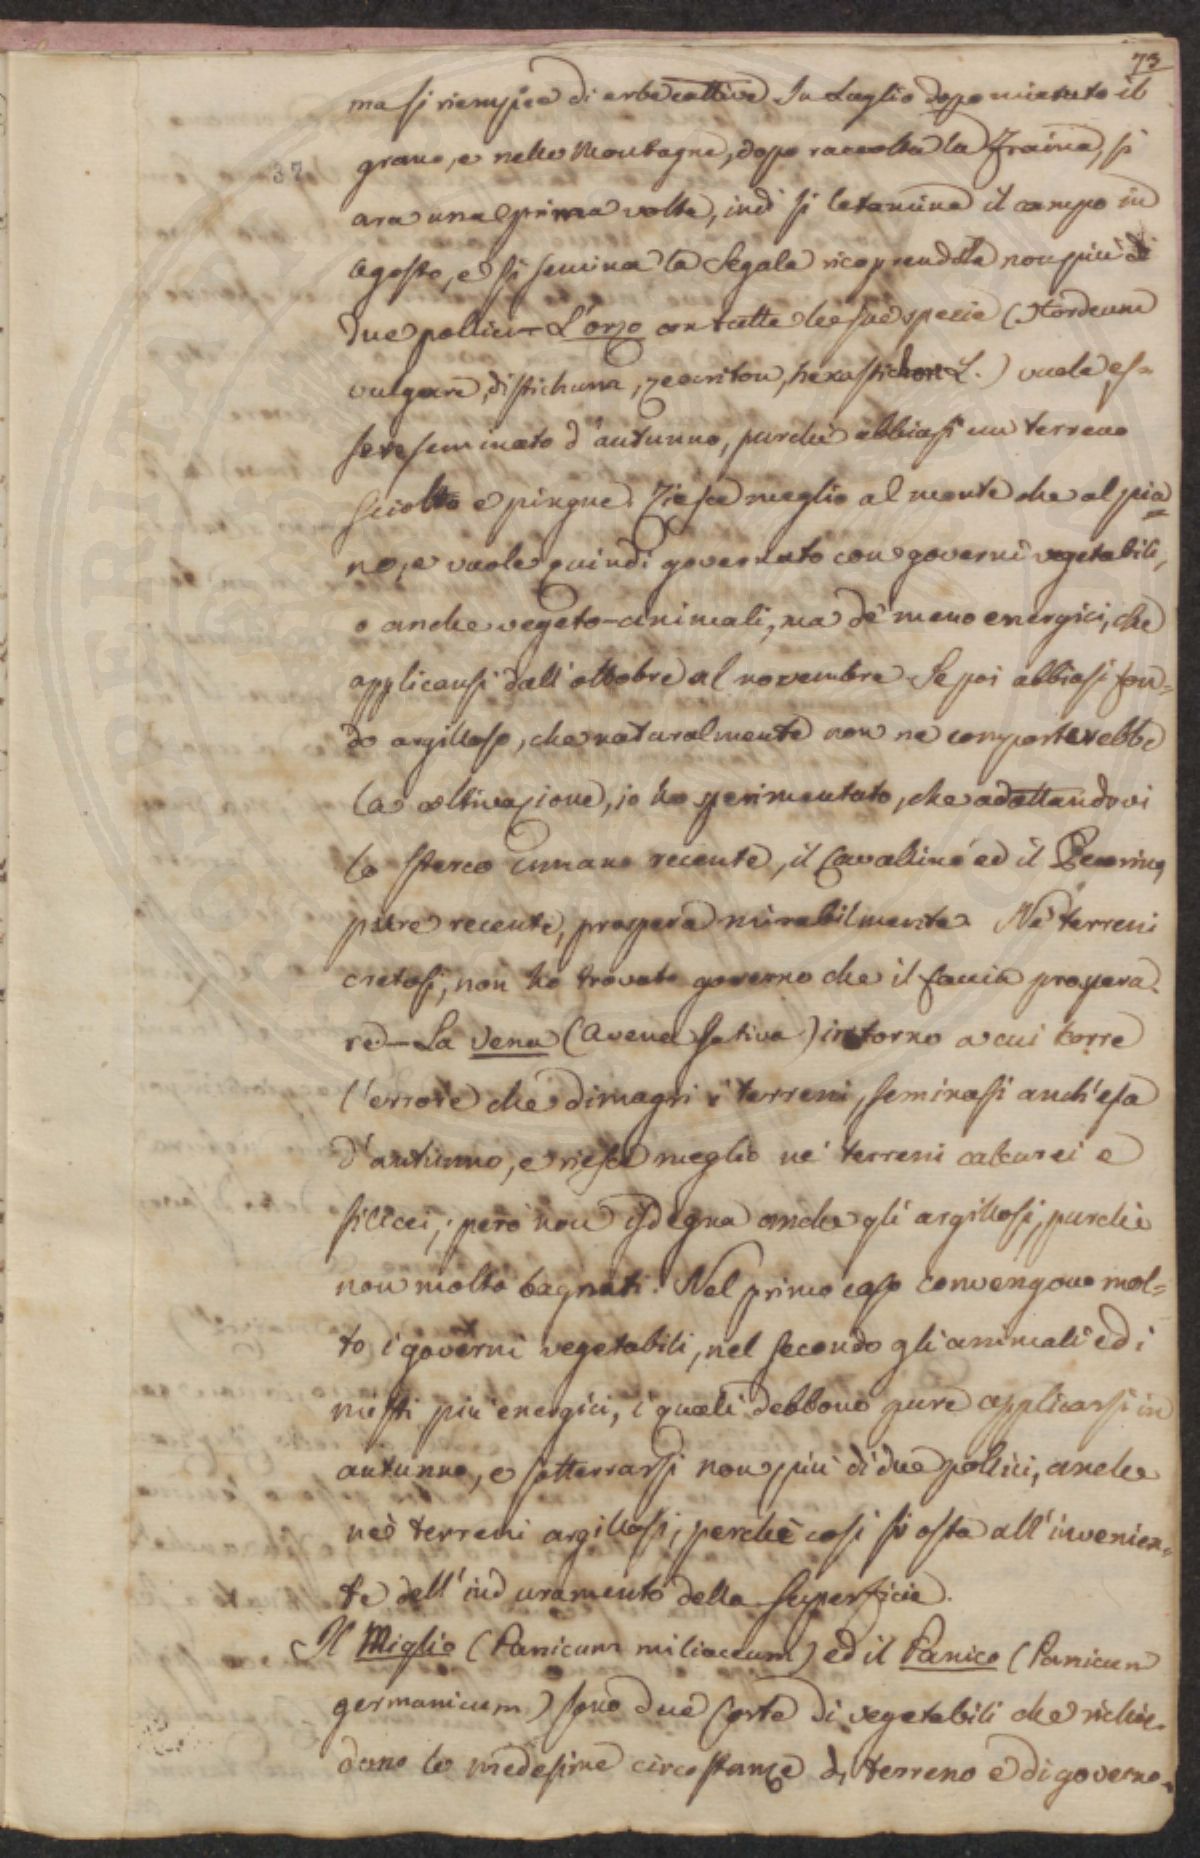 73
37
ma si riempie di erbe cattive. In Luglio dopo mietuto il
grano, e nelle Montagne, dopo raccolta la Fraina, si
ara una prima volta, indi si letamina il campo in
Agosto, e si semina la Segala ricoprendola non più di
due pollici — L'orzo con tutte le sue specie (Hordeum
vulgare, distichum, zeocriton, hexastichon L.) vuole es=
sere seminato d'autunno, purchè abbiasi un terreno
sciolto e pingue. Riesce meglio al monte che al pia=
no, e vuole quindi governato con governi vegetabili,
o anche vegeto-animali, ma de' meno energici, che
applicansi dall'ottobre al novembre. Se poi abbiasi fon=
do argilloso, che naturalmente non ne comporterebbe
la coltivazione, io ho sperimentato, che adattandovi
lo sterco umano recente, il Cavallino ed il Pecorino,
pure recenti, prospera mirabilmente. Ne' terreni
cretosi, non ho trovato governo che il faccia prospera=
re — La Vena (Avena Sativa) intorno a cui corre
l'errore che dimagri i terreni, seminasi anch'essa
d'autunno, e riesce meglio ne' terreni calcarei e
silicei; però non isdegna anche gli argillosi, purchè
non molto bagnati. Nel primo caso convengono mol=
to i governi vegetabili, nel secondo gli animali ed i
misti più energici, i quali debbono pure applicarsi in
autunno, e sotterrarsi non più di due pollici, anche
ne' terreni argillosi, perchè così si osta all'invenien=
te dell'induramento della Superficie.
Il Miglio (Panicum miliaceum) ed il Panico (Panicum
germanicum) sono due sorte di vegetabili che richie=
dono le medesime circostanze di terreno e di governo.